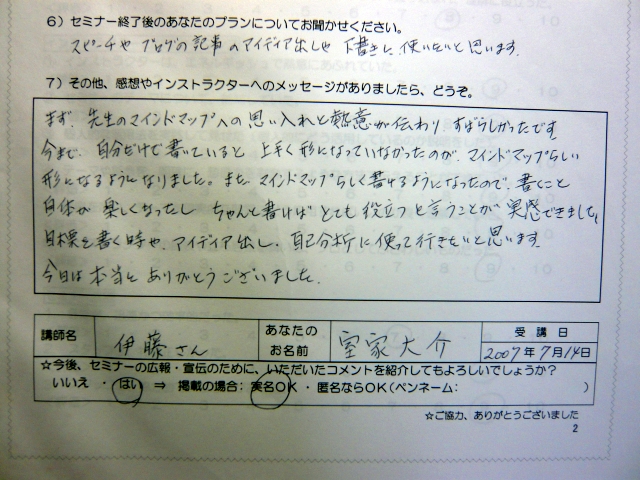 6）セミナー終了後のあなたのプランについてお聞かせください。
スピーチや ブログの記事のアイディア出しや 下書きに 使いたいと思います。
7）その他、感想やインストラクターへのメッセージがありましたら、どうぞ。
まず、先生のマインドマップへの思い入れと熱意が伝わり すばらしかったです
今まで、自分だけで書いていると 上手く形になっていなかったのが、マインドマップらしい
形になるようになりました。また、マインドマップらしく書けるようになったので、書くこと
自体が 楽しくなったし ちゃんと書けば とても 役立つと言うことが 実感できました。
目標を書く時や、アイディア出し、自己分析に使って行きたいと思います。
今日は本当に ありがとうございました。
講師名 伊藤さん あなたのお名前 室家大介 受講日 2007年7月14日
☆今後、セミナーの広報・宣伝のために、いただいたコメントを紹介してもよろしいでしょうか？
いいえ ・ はい ⇒ 掲載の場合：実名OK ・ 匿名ならOK（ペンネーム： ）
☆ご協力、ありがとうございました
2